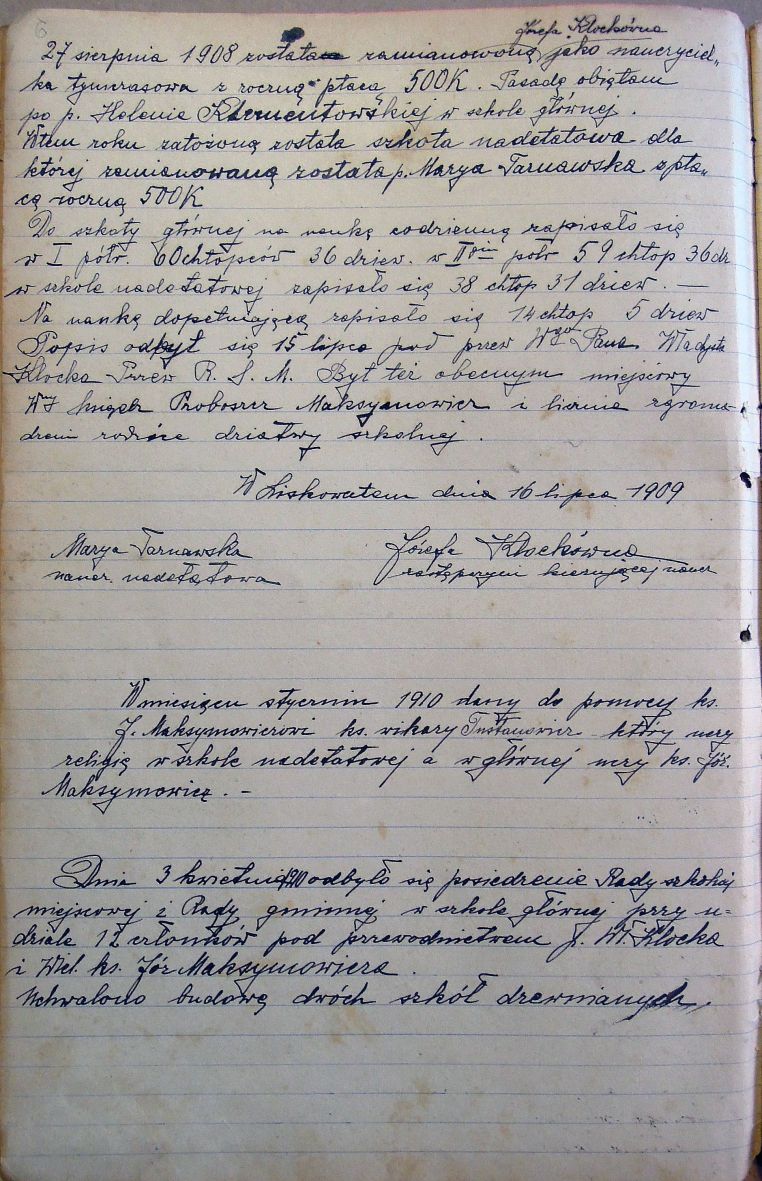 6
Józefa Kłockówna
27 sierpnia 1908 została zamianowoną jako nauczyciel„
ka tymczasowa z roczną płacą 500K. Posadę objęłam
po p. Helenie Klementowskiej w szkole głównej.
W tem roku założoną została szkoła nadetatowa dla
której zamianowaną została p. Marya Tarnawska z pła„
cą roczną 500K
Do szkoły głównej na naukę codzienną zapisało się
w I półr. 60 chłopców 36 dziew. w II gim półr 59 chłop 36 dz
w szkole nadetatowej zapisało się 38 chłop 31 dziew. —
Na naukę dopełniającą zapisało się 14 chłop 5 dziew
Popis odbył się 15 lipca pod przew Wgo Pana Władysła
Kłocka Przew R. S. M. Był też obecnym miejscowy
Wy ksiądz Proboszcz Maksymowicz i licznie zgroma-
dzeni rodzice dziatwy szkolnej.
W Liskowatem dnia 16 lipca 1909
Marya Tarnawska Józefa Kłockówna
naucz. nadetatowa zastępczyni kierującej naucz
W miesiącu styczniu 1910 dany do pomocy ks.
J. Maksymowiczowi ks. wikary Tustanowicz który uczy
religię w szkole nadetatowej a w głównej uczy ks. Józ.
Maksymowicz. —
Dnia 3 kwietnia odbyło się posiedzenie Rady szkolnej
miejscowej i Rady gminnej w szkole głównej przy u-
dziale 12 członków pod przewodnictwem p. Wł. Kłocka
i Wiel. ks. Józ Maksymowicza.
Uchwalono budowę dwóch szkół drewnianych.